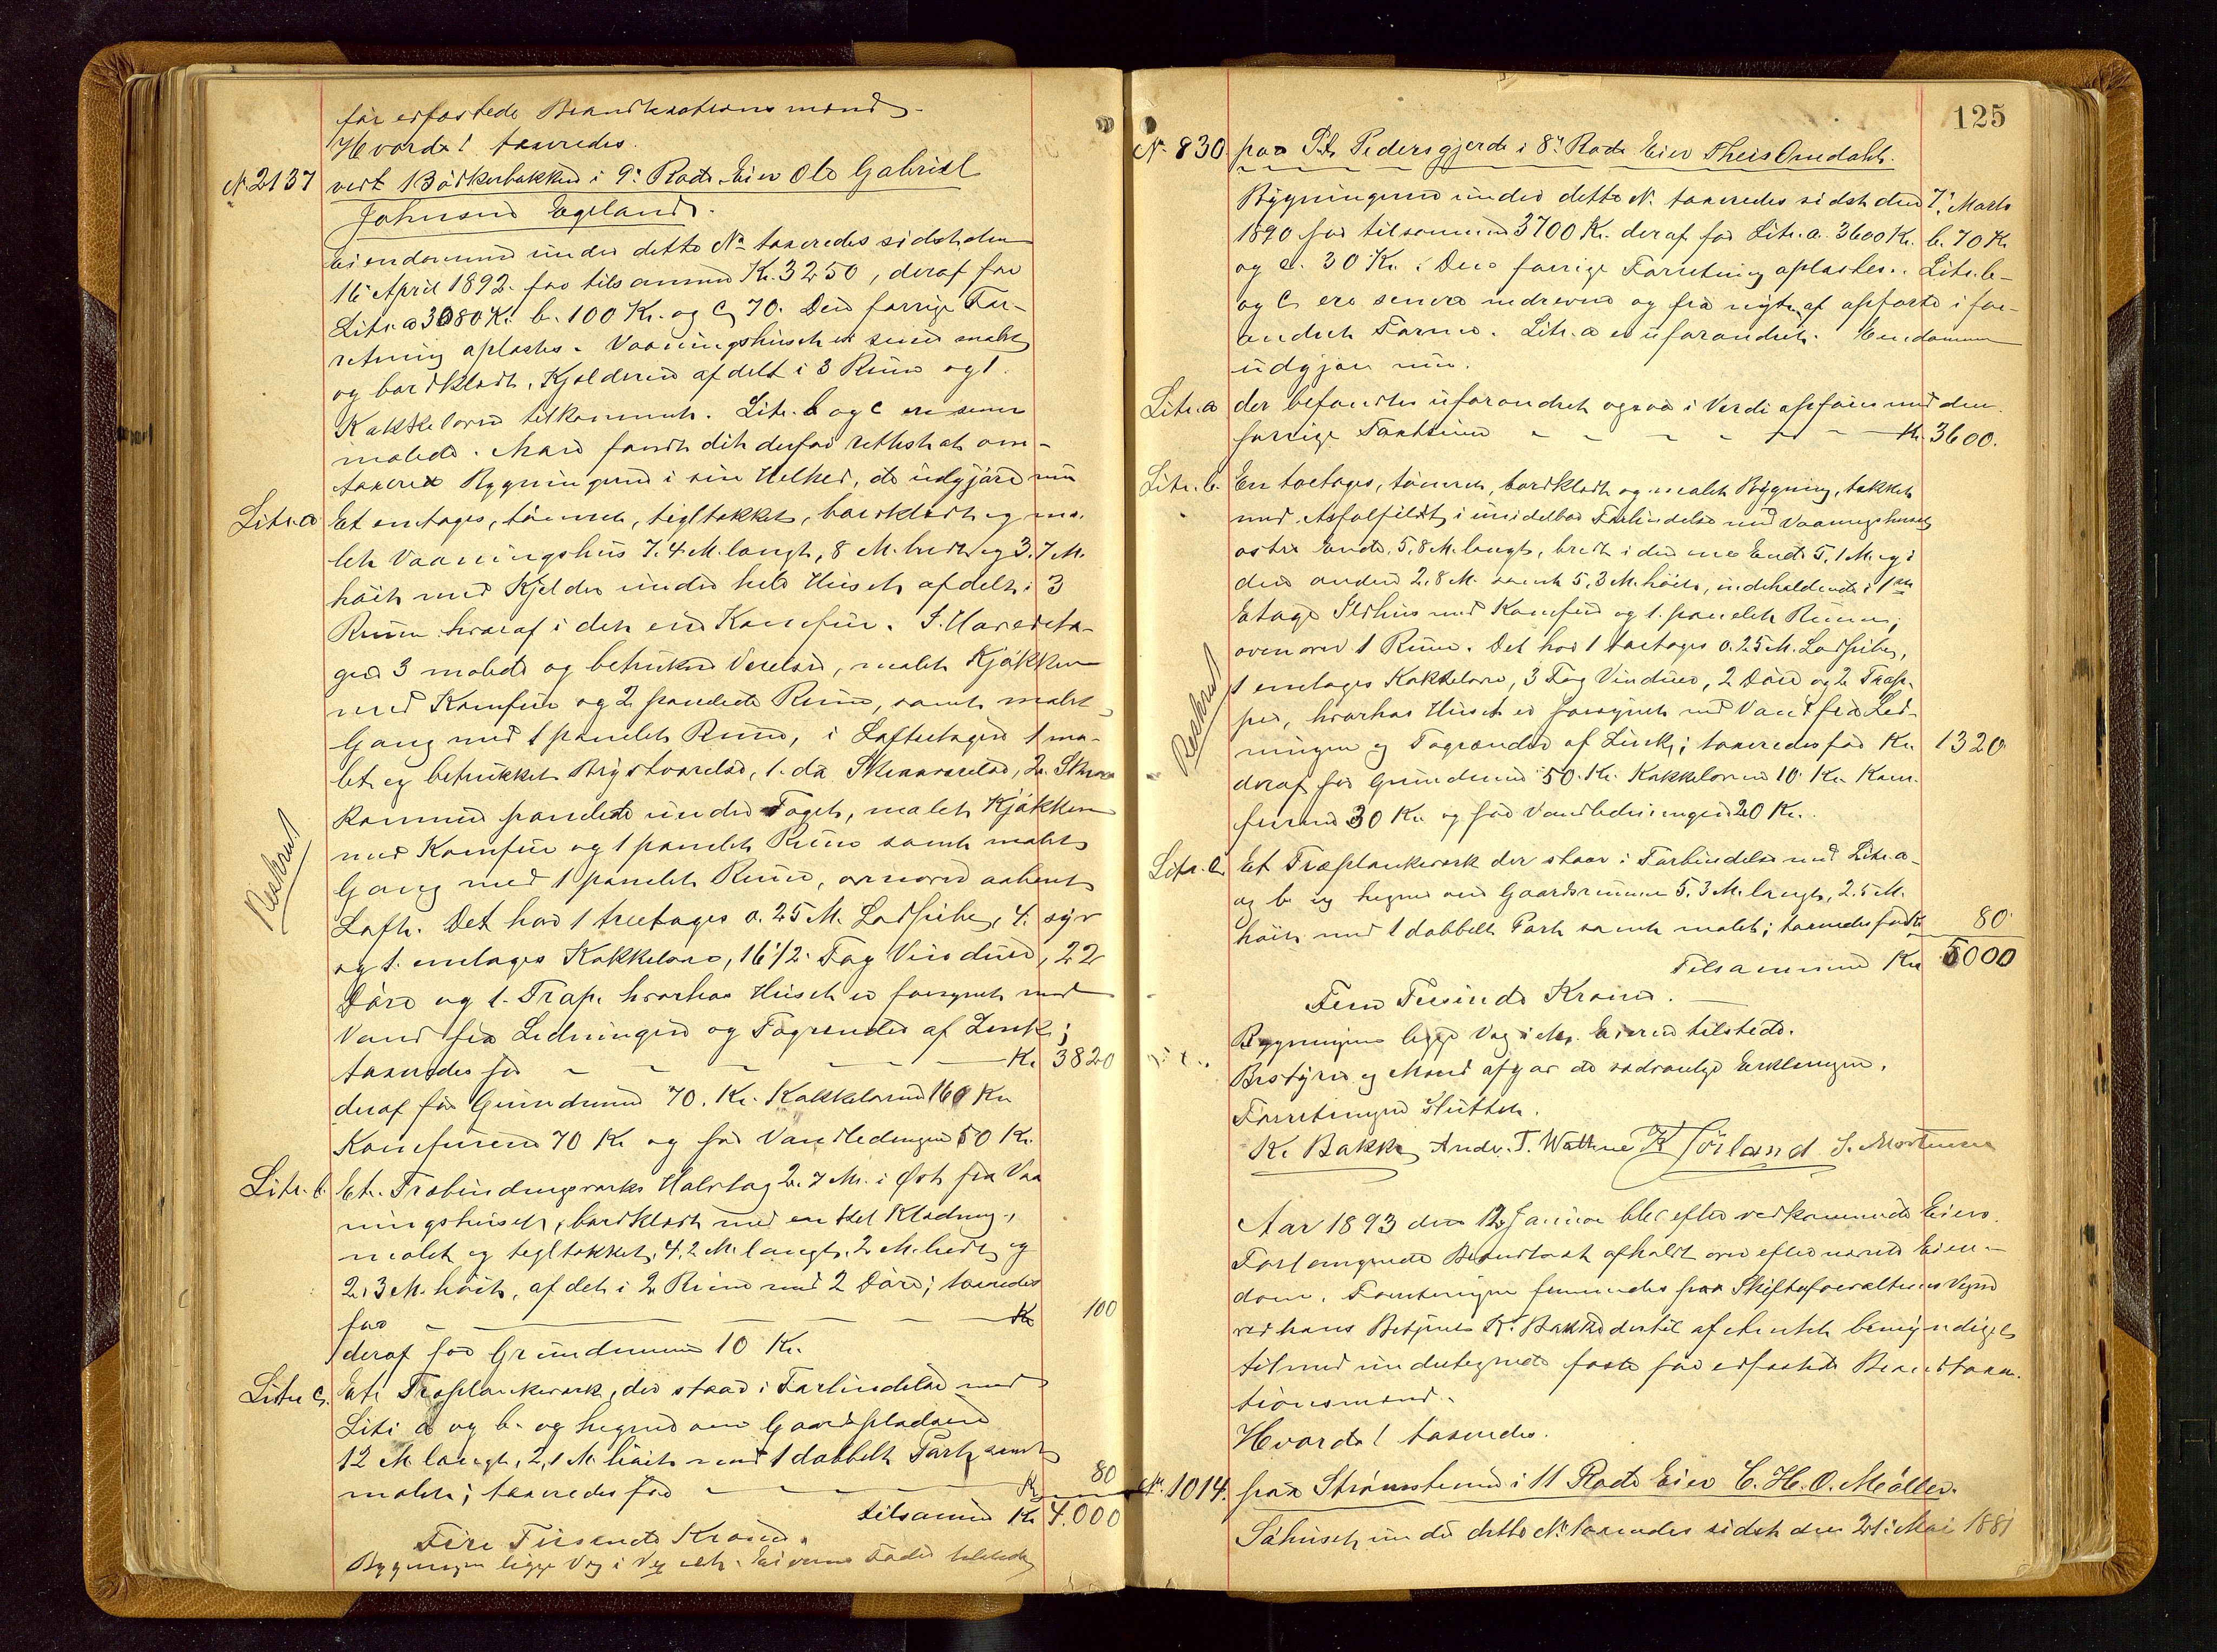 for erfastede Brandtaxtionsmænd.
Hvorda! taxeredes.
N. 2137 vest Bödkerbakken i 9de Rode Eier Ole Gabriel
Johnsen Egeland.
Eiendommen under dette No taxeredes sidst den
16 April 1892 for tilsammen Kr. 3250, deraf for
Litr. a 3080 Kr. b. 100 Kr. og C 70. Den forrige For-
retning oplæstes. Vaaningshuset er senere malet
og bordklædt, Kjelderen afdelt i 3 Rum og 1
Kakkelovn tilkommet. Litr. b og c ere senere
malede. Man fandt det derfor rettest at om-
taxere Bygningerne i sin Helhed, de udgjöre nu
Litr. a Et enetages, tömret, tegltækket, bordklædt og ma-
let Vaaningshus 7.4 M. langt, 8 M. bredt og 3.7 M.
höit med Kjelder under hele Huset afdelt i 3
Rum hvoraf i det ene Komfur. I Hovedeta-
gen 3 malede og betrukne Værelser, malet Kjökken
med Komfur og 2 panelede Rum, samt malet
Gang med 1 panelet Rum, i Loftsetagen 1 ma-
let og betrukket Kvistværelse, 1 do Skraaværelse, 2 Skraa
Rommene panelede under Taget, malet Kjökken
med Komfur og 1 panelet Rum samt malet
Gang med 1 panelet Rum, ovenover aabent
Loft. Det har 1 treetages 0.25 M. Lodpibe, 4 syv
og 1 enetages Kakkelovn, 16 1/2 Fag Vinduer, 22
Döre og 1 Trap. hvorhos Huset er forsynet med
Vand fra Ledningen og Tagrender af Zink;
taxeredes for Kr. 3820
deraf for Grundmuren 70 Kr. Kakkelovnene 160 Kr.
Komfurene 70 Kr. og for Vandledningen 50 Kr.
Reskript
Litr. b. Et Træbindingsværks Halvtag 2.7 M. i Øst fra Vaa
ningshuset, bordklædt med enkel Klædning,
malet og tegltækket, 4.2 M. langt, 2 M. bredt og
2,3 M. höit, afdelt i 2 Rum med 2 Döre; taxeredes
for Kr. 100
deraf for Grundmuren 10 Kr.
Litr. C. Et Træplankeværk, der staar i Forbindelse med
Litr. a og b og hegner om Gaardspladsen
12 M. langt, 2,1 M. höit med 1 dobbelt Port samt
malet; taxeredes for Kr. 80
tilsammen Kr. 4.000
Fire Tusende Kroner.
Bygningen ligge Vag i Vg. Eierens Fader tilstede
125
N. 830 paa Pt. Pedersgjerde i 8de Rode Eier Theis Omdahl.
Bygningerne under dette N. taxeredes sidst den 7de Marts
1890 for tilsammen 3700 Kr. deraf for Litr. a. 3600 Kr. b. 70 Kr.
og c. 30 Kr. Den forrige Forretning oplæstes. Litr. b
og C ere senere nedrevne og fra nyt af opförte i for-
andret Form. Litr. a er uforandret. Eiendommen
udgjör nu.
Litr. a der befandtes uforandret ogsaa i Værdi opföres med den
forrige Taxtsum Kr. 3600.
Litr. b. En toetages, tömret, bordklædt og malet Bygning, tækket
med Asfaltfildt, i umiddelbar Forbindelse med Vaaningshusets
østre Ende, 5,8 M. langt, bredt i den ene Ende 5,1 M. og i
den anden 2,8 M. samt 5,3 M. höit, indeholdende i 1ste
Etage Ildhus med Komfur og 1 panelet Rum,
ovenover 1 Rum. Det har 1 toetages 0.25 M. Lodpibe,
1 enetages Kakkelovn, 3 Fag Vinduer, 2 Döre og 2 Trap-
per, hvorhos Huset er forsynet med Vand fra Led-
ningen og Tagrender af Zink; taxeredes for Kr. 1320
deraf for Grundmuren 50 Kr. Kakkelovnen 10 Kr. Kom-
furen 30 Kr. og for Vandledningen 20 Kr.
Reskript
Litr. C. Et Træplankeværk der staar i Forbindelse med Litr. a
og b og hegner om Gaardsrummet 5,3 M. langt, 2.5 M.
höit med 1 dobbelt Port samt malet; taxeredes for Kr. 80
Tilsammen Kr. 5000
Fem Tusinde Kroner.
Bygningerne ligge Vag i Eieren tilstede.
Bestyrer og Mænd afgav de sædvanlige Erklæringer.
Forretningen sluttet.
K. Bakke Andr. T. Wattne K Törland S. Mortensen
Aar 1893 den 12 Januar blev efter vedkommende Eiers
Forlangende Brandtaxt afholdt over efternævnte Eien-
dom. Forretningen fremmedes paa Skifteforvalterens Vegne
ved hans Betjent K. Bakke dertil af Amtet bemyndiget
tilmed undertegnede faste for erfastede Brandtaxa-
tionsmænd.
Hvorda! taxeredes.
No. 1014. paa Strømsteen i 11 Rode Eier C. H. O. Möller.
Söhuset under dette N. taxeredes sidst den 21. Mai 1881